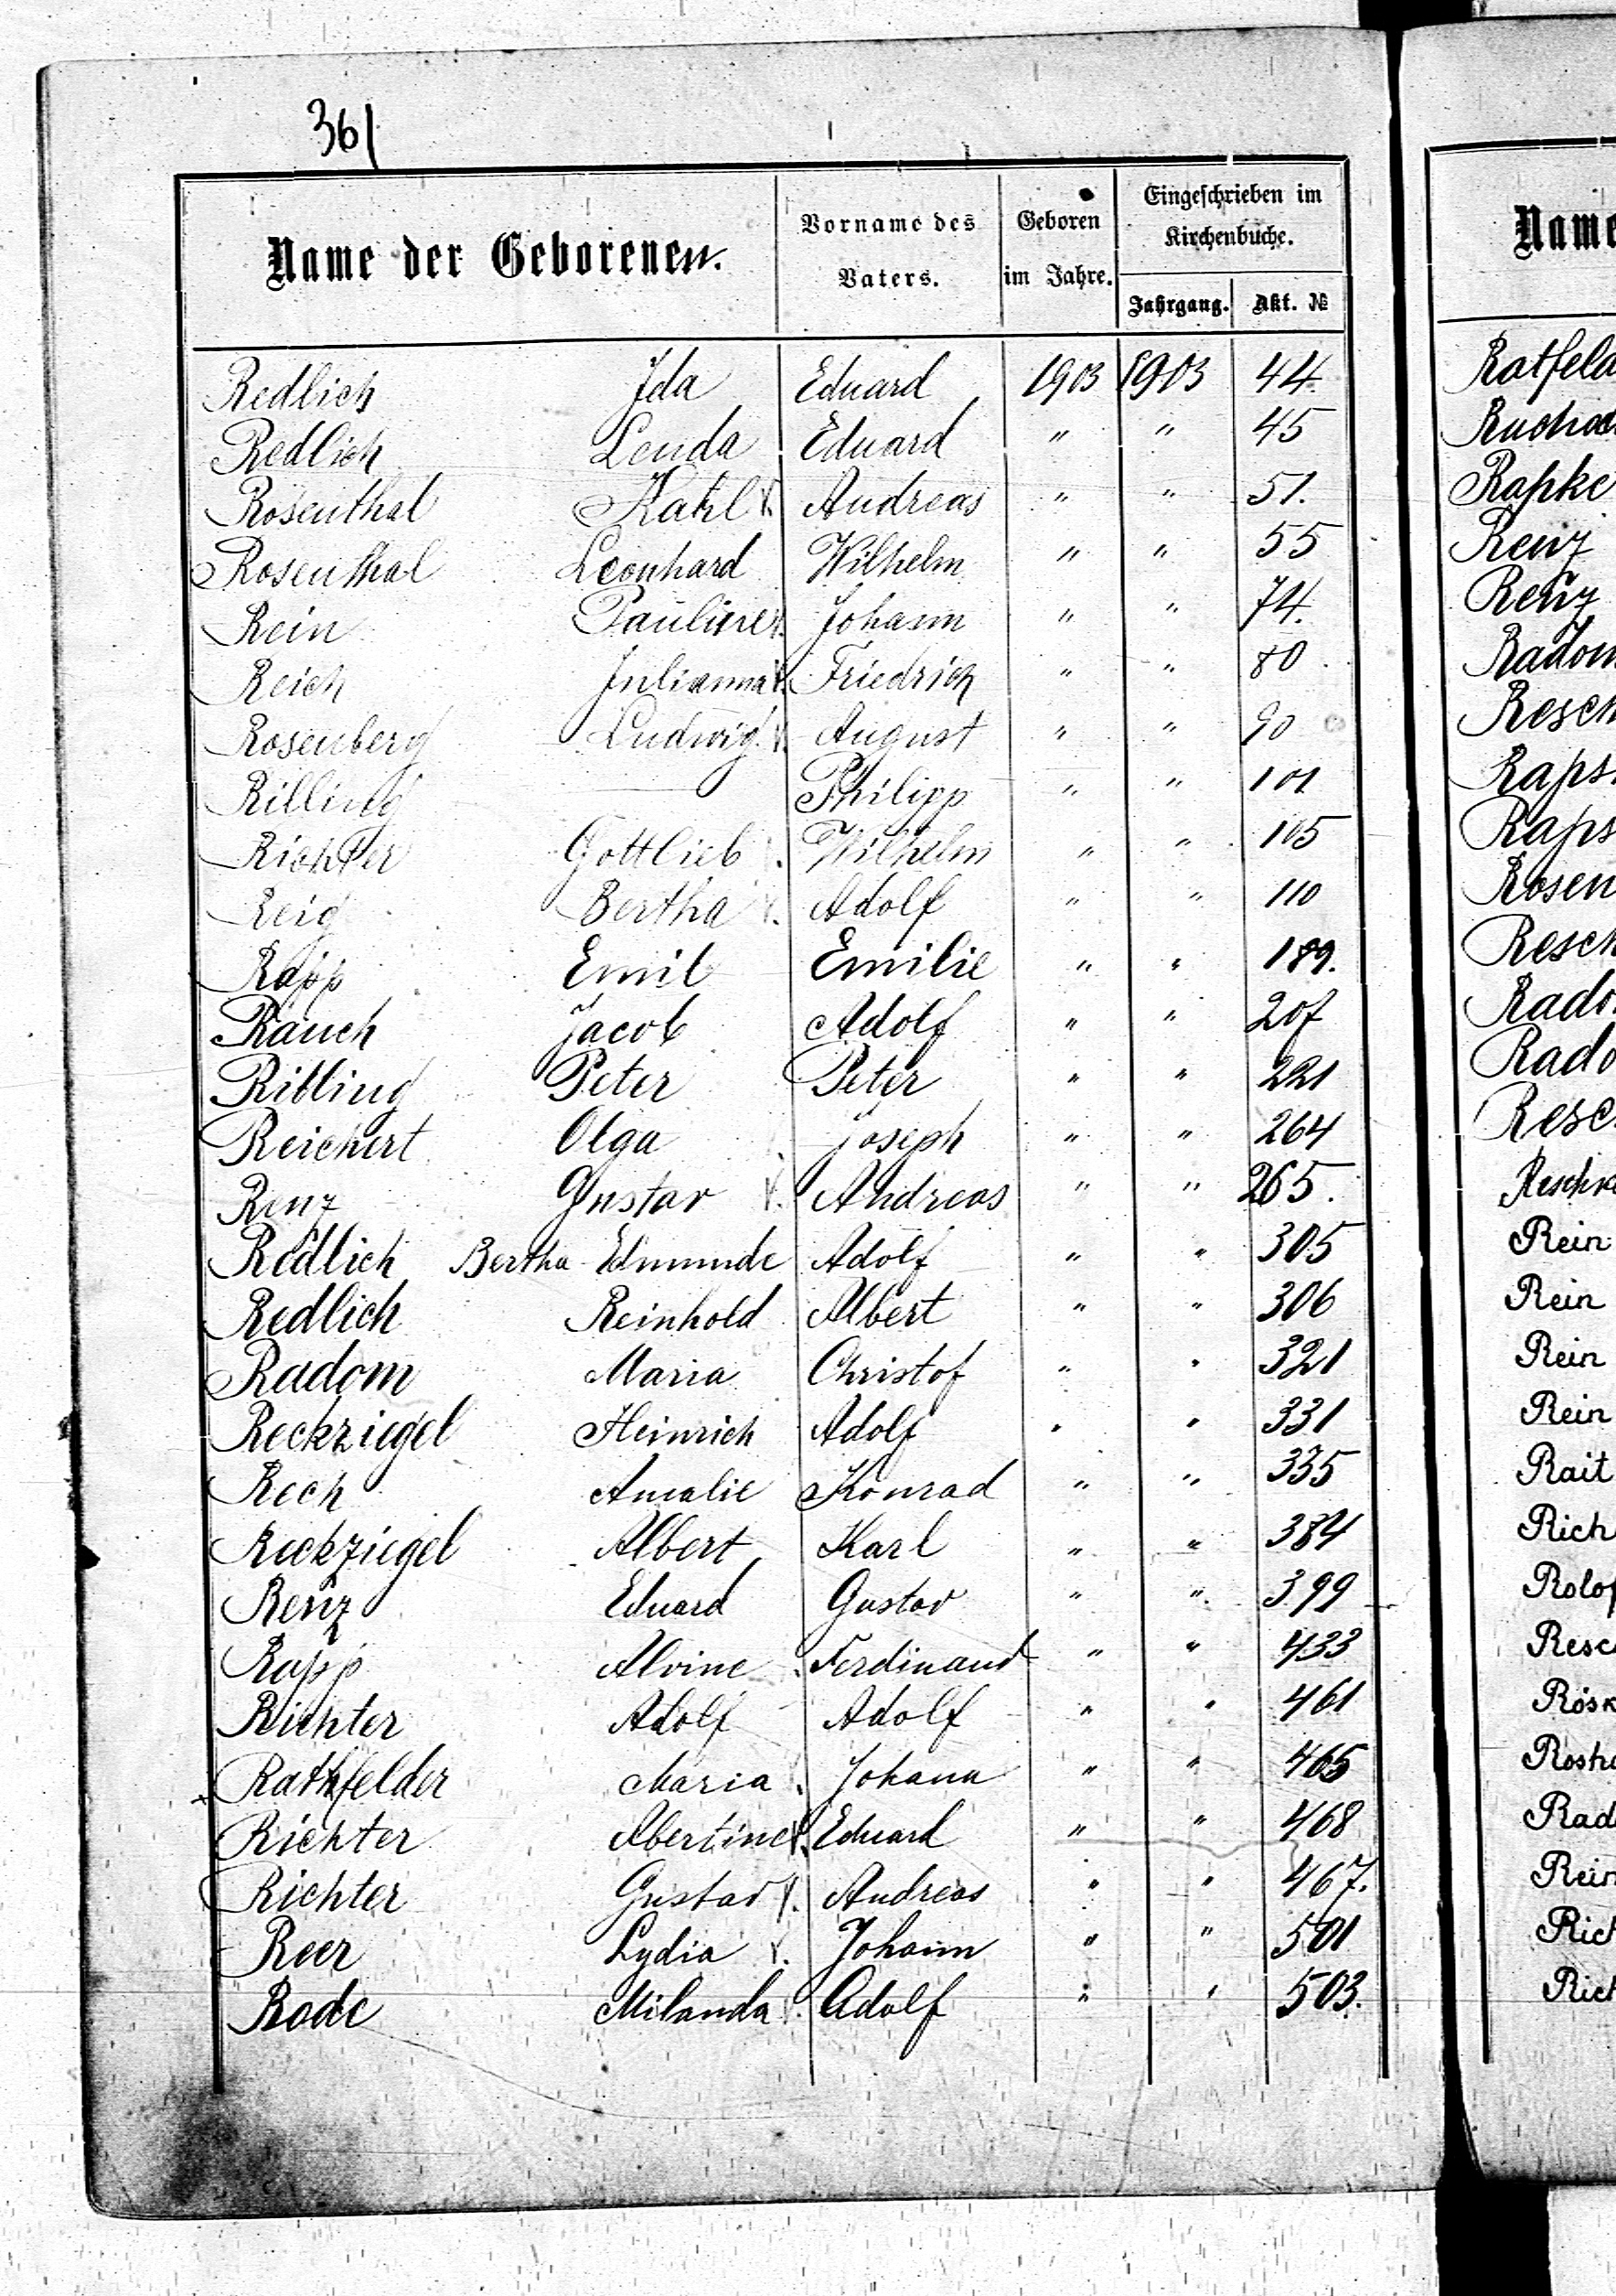 361
Name der Geborenen. Vorname des Vaters. Geboren im Jahre. Eingeschrieben im Kirchenbuche. Jahrgang. Akt. №
Redlich Ida Eduard 1903 1903 44
Redlich Lenda Eduard " " 45
Rosenthal Kahl Andreas " " 51.
Rosenthal Leonhard Wilhelm " " 55
Rein Pauline Johann " " 74.
Reich Julianna Friedrich " " 80
Rosenberg Ludwig August " " 90
Rilling — Philipp " " 101
Richter Gottlieb Wilhelm " " 105
Reig Bertha Adolf " " 110
Rapp Emil Emilie " " 189.
Rauch Jacob Adolf " " 207
Ribling Peter Peter " " 221
Reichert Olga Joseph " " 264
Renz Gustav Andreas " " 265.
Redlich Bertha Edmunde Adolf " " 305
Redlich Reinhold Albert " " 306
Radom Maria Christof " " 321
Reckziegel Heinrich Adolf " " 331
Rech Amalie Konrad " " 335
Reckziegel Albert Karl " " 384
Renz Eduard Gustav " " 399
Rapp Alvine Ferdinand " " 433
Richter Adolf Adolf " " 461
Rathfelder Maria Johann " " 465
Richter Abertine Eduard " " 468
Richter Gustav Andreas " " 467.
Reer Lydia Johann " " 501
Rode Milanda Adolf " " 503.
Name
Ratfeld
Rapke
Renz
Renz
Radom
Resch
Raps
Raps
Rosen
Resch
Rado
Rado
Resc
Reschke
Rein
Rein
Rein
Rein
Rait
Rich
Rolof
Resc
Rösk
Rad
Rein
Rich
Rich